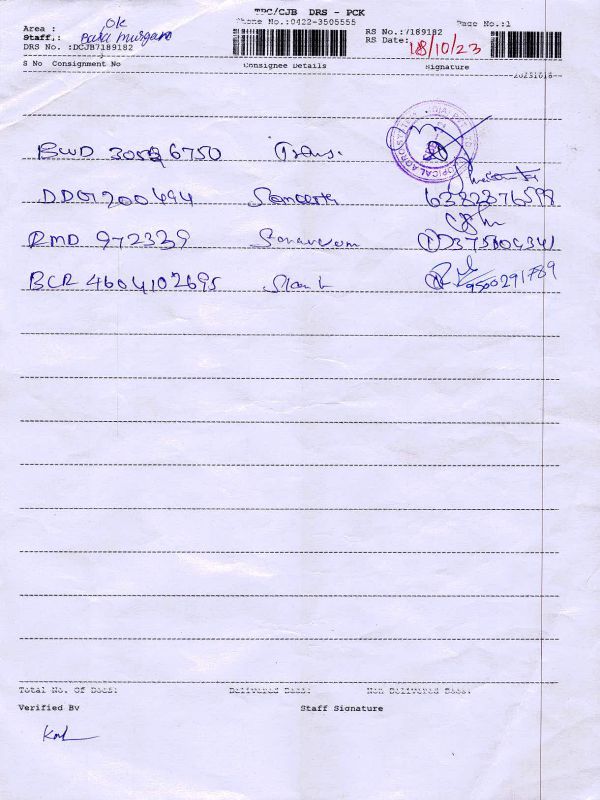 TPC/CJB DRS - PCK
Phone No.:0422-3505555
Page No.:1
OK
Area :
Staff.: Bala Murugan
DRS No. :DCJB7189182
RS No.:7189182
RS Date: 18/10/23
S No Consignment No Consignee Details Signature
20231018
BWD 30596750 Trans.
DDG1200494 6382376598
RMD 972339 Saravanam
BCR 4604102695 9500291789
Total No. Of Docs: Delivered Docs: Non Delivered Docs:
Verified By Staff Signature